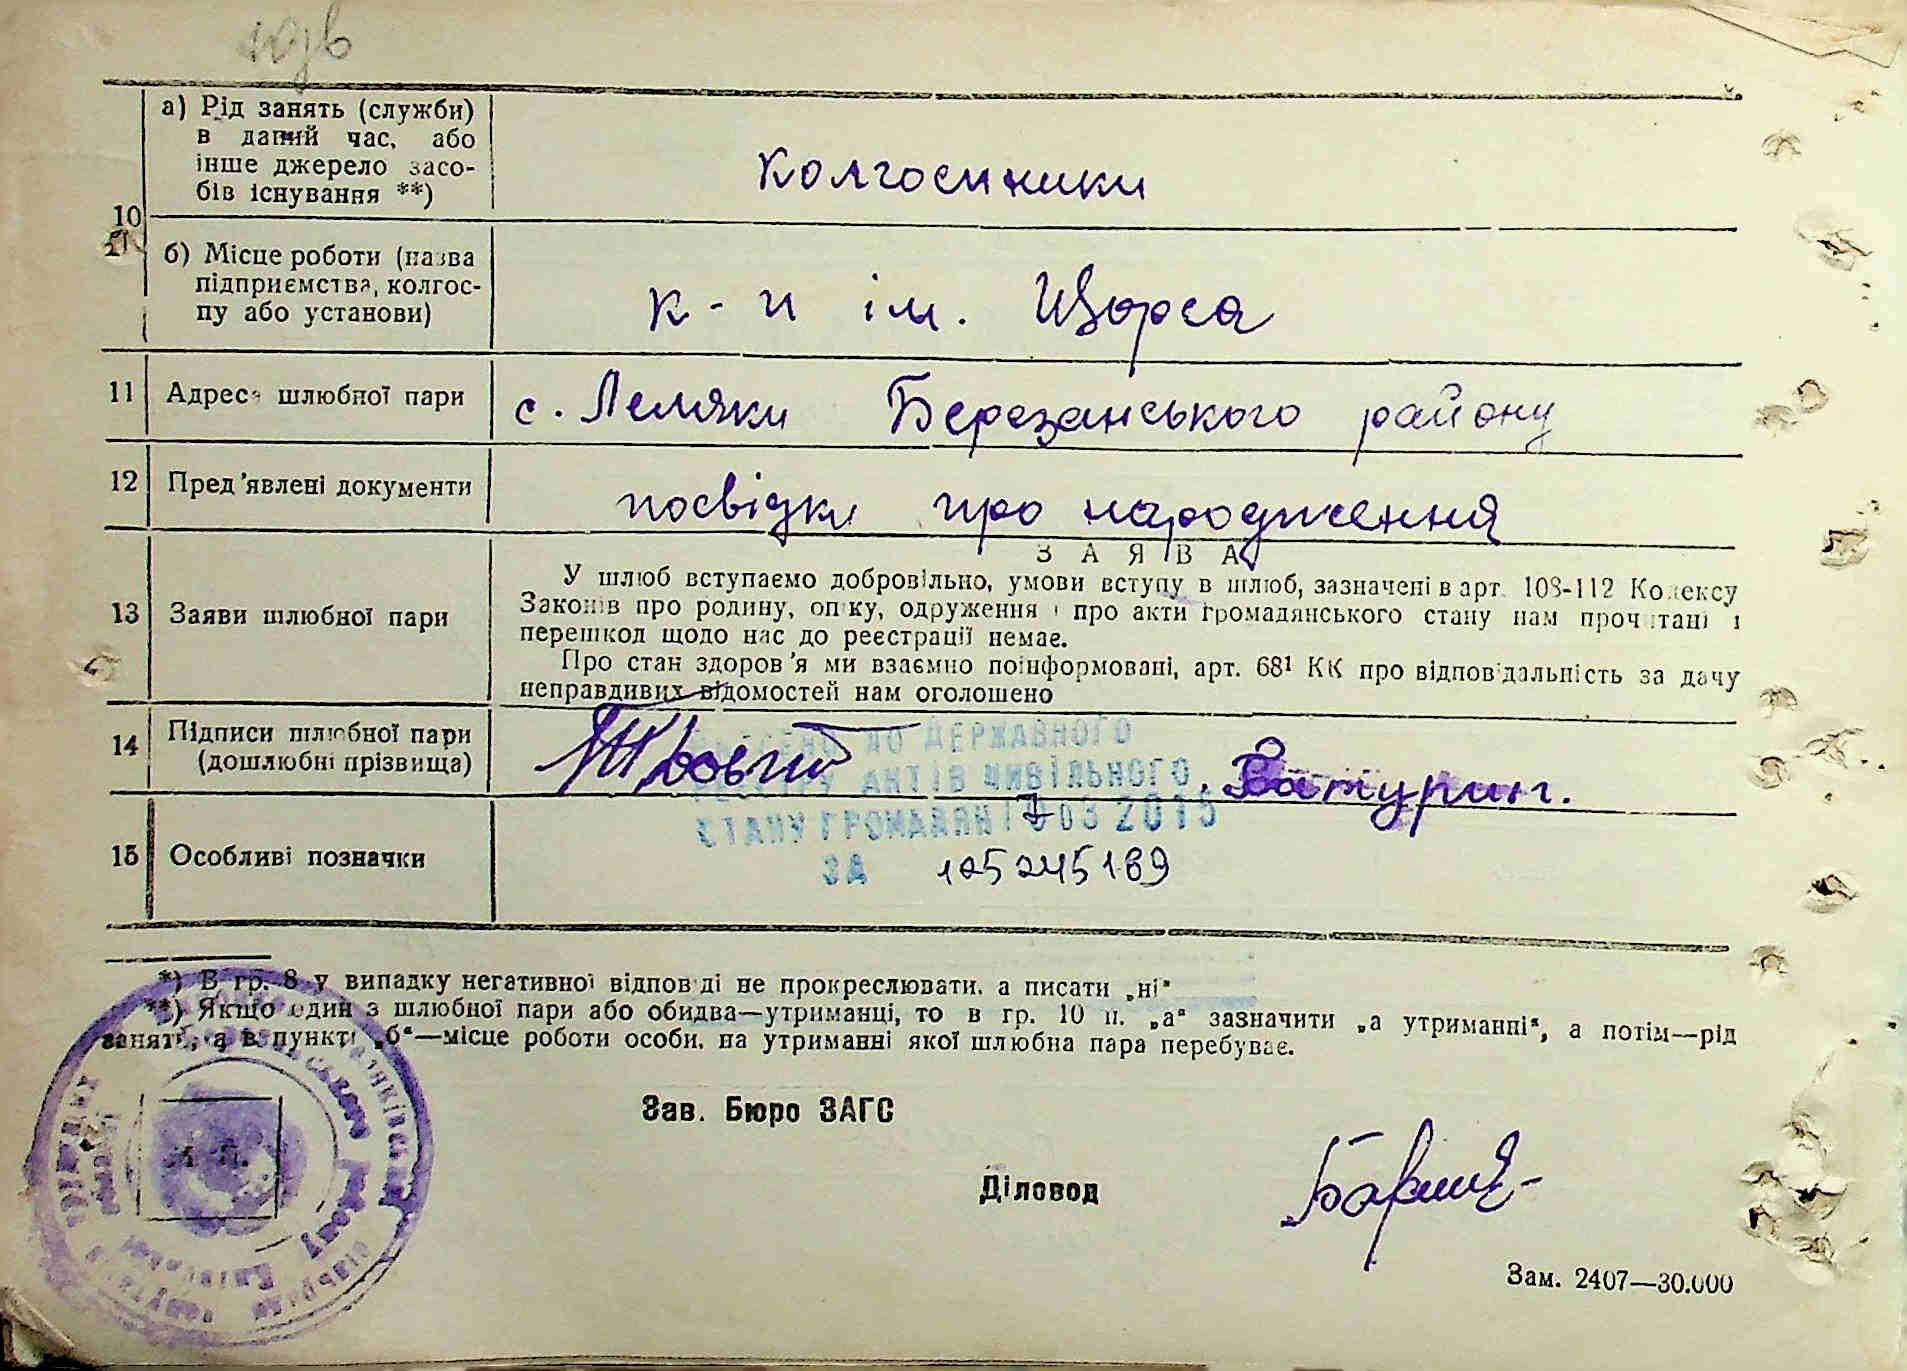 10
а) Рід занять (служби)
в даний час, або
інше джерело засо-
бів існування **)
колгоспники
б) Місце роботи (назва
підприємства, колгос-
пу або установи)
к-п ім. Щорса
11 Адреса шлюбної пари
с. Лемяки Березанського району
12 Пред'явлені документи
посвідки про народження
13 Заяви шлюбної пари
ЗАЯВА
У шлюб вступаємо добровільно, умови вступу в шлюб, зазначені в арт. 108-112 Кодексу
Законів про родину, опіку, одруження і про акти громадянського стану нам прочитані і
перешкод щодо нас до реєстрації немає.
Про стан здоров'я ми взаємно поінформовані, арт. 68¹ КК про відповідальність за дачу
неправдивих відомостей нам оголошено
14 Підписи шлюбної пари
(дошлюбні прізвища)
ВНЕСЕНО ДО ДЕРЖАВНОГО
РЕЄСТРУ АКТІВ ЦИВІЛЬНОГО
СТАНУ ГРОМАДЯН 03 2015
ЗА
15 Особливі позначки
*) В гр. 8 у випадку негативної відповіді не прокреслювати, а писати „ні“
**) Якщо один з шлюбної пари або обидва—утриманці, то в гр. 10 п. „а“ зазначити „а утриманні“, а потім—рід
занять, а в пункті „б“—місце роботи особи, на утриманні якої шлюбна пара перебуває.
М. П.
Зав. Бюро ЗАГС
Діловод
Зам. 2407—30.000